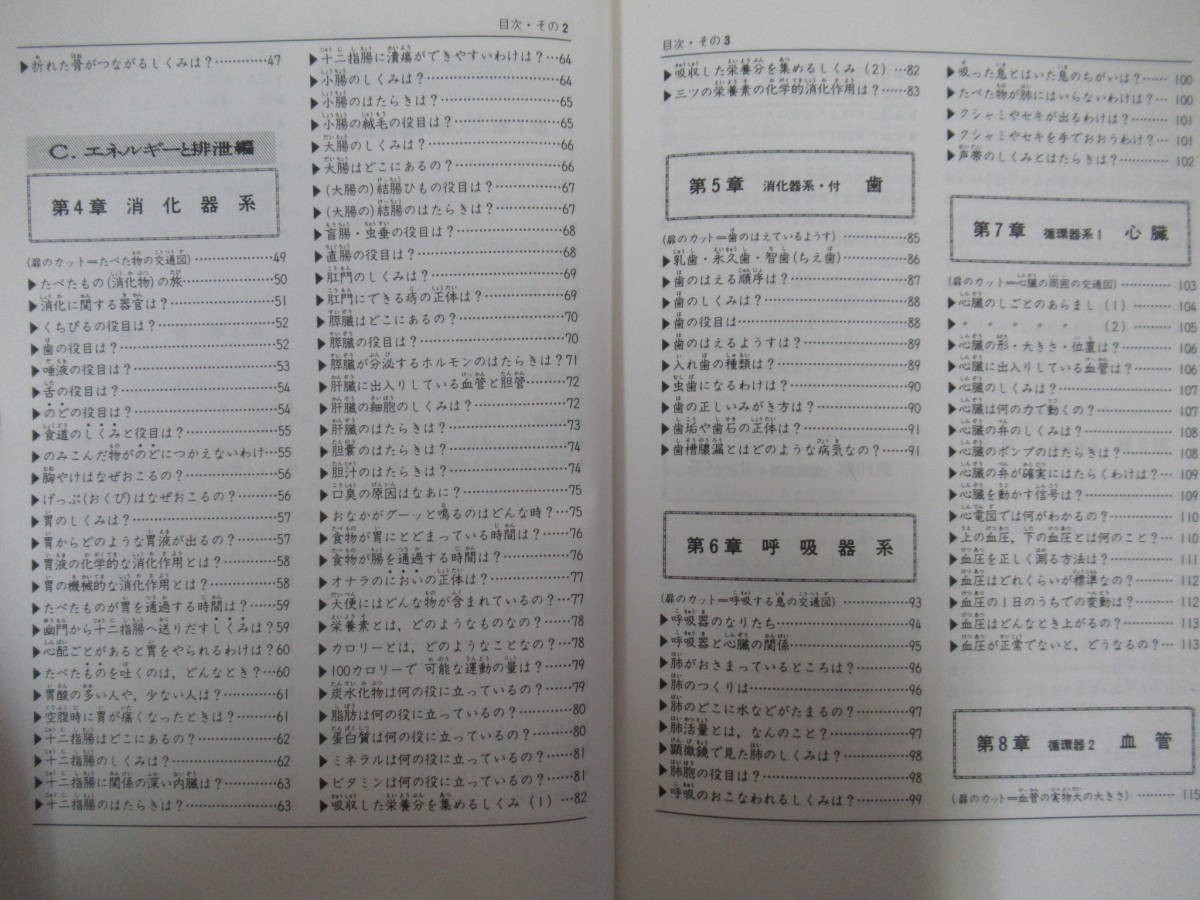 目次・その2
▶折れた骨がつながるしくみは？…………47
C. エネルギーと排泄編
第4章 消化器系
(扉のカット＝たべた物の交通図)…………49
▶たべたもの(消化物)の旅…………50
▶消化に関する器官は？…………51
▶くちびるの役目は？…………52
▶歯の役目は？…………52
▶唾液の役目は？…………53
▶舌の役目は？…………54
▶のどの役目は？…………54
▶食道のしくみと役目は？…………55
▶のみこんだ物がのどにつかえないわけ…55
▶胸やけはなぜおこるの？…………56
▶げっぷ(おくび)はなぜおこるの？…………56
▶胃のしくみは？…………57
▶胃からどのような胃液が出るの？…………57
▶胃液の化学的な消化作用とは？…………58
▶胃の機械的な消化作用とは？…………58
▶たべたものが胃を通過する時間は？……59
▶幽門から十二指腸へ送りだすしくみは？59
▶心配ごとがあると胃をやられるわけは？60
▶たべたものを吐くのは，どんなとき？…60
▶胃酸の多い人や，少ない人は？…………61
▶空腹時に胃が痛くなったときは？………61
▶十二指腸はどこにあるの？…………62
▶十二指腸のしくみは？…………62
▶十二指腸に関係の深い内臓は？…………63
▶十二指腸のはたらきは？…………63
▶十二指腸に潰瘍ができやすいわけは？…64
▶小腸のしくみは？…………64
▶小腸のはたらきは？…………65
▶小腸の絨毛の役目は？…………65
▶大腸のしくみは？…………66
▶大腸はどこにあるの？…………66
▶(大腸の)結腸ひもの役目は？…………67
▶(大腸の)結腸のはたらきは？…………67
▶盲腸・虫垂の役目は？…………68
▶直腸の役目は？…………68
▶肛門のしくみは？…………69
▶肛門にできる痔の正体は？…………69
▶膵臓はどこにあるの？…………70
▶膵臓の役目は？…………70
▶膵臓が分泌するホルモンのはたらきは？71
▶肝臓に出入りしている血管と胆管………72
▶肝臓の細胞のしくみは？…………72
▶肝臓のはたらきは？…………73
▶胆嚢のはたらきは？…………74
▶胆汁のはたらきは？…………74
▶口臭の原因はなあに？…………75
▶おなかがグーッと鳴るのはどんな時？…75
▶食物が胃にとどまっている時間は？……76
▶食物が腸を通過する時間は？…………76
▶オナラのにおいの正体は？…………77
▶大便にはどんな物が含まれているの？…77
▶栄養素とは，どのようなものなの？……78
▶カロリーとは，どのようなことなの？…78
▶100カロリーで可能な運動の量は？……79
▶炭水化物は何の役に立っているの？……79
▶脂肪は何の役に立っているの？…………80
▶蛋白質は何の役に立っているの？………80
▶ミネラルは何の役に立っているの？……81
▶ビタミンは何の役に立っているの？……81
▶吸収した栄養分を集めるしくみ（1）…82
目次・その3
▶吸収した栄養分を集めるしくみ（2）…82
▶三ツの栄養素の化学的消化作用は？……83
第5章 消化器系・付 歯
(扉のカット＝歯のはえているようす)…………85
▶乳歯・永久歯・智歯(ちえ歯)…………86
▶歯のはえる順序は？…………87
▶歯のしくみは？…………88
▶歯の役目は…………88
▶歯のはえるようすは？…………89
▶入れ歯の種類は？…………89
▶虫歯になるわけは？…………90
▶歯の正しいみがき方は？…………90
▶歯垢や歯石の正体は？…………91
▶歯槽膿漏とはどのような病気なの？……91
第6章 呼吸器系
(扉のカット＝呼吸する息の交通図)…………93
▶呼吸器のなりたち…………94
▶呼吸器と心臓の関係…………95
▶肺がおさまっているところは？…………96
▶肺のつくりは…………96
▶肺のどこに水などがたまるの？…………97
▶肺活量とは，なんのこと？…………97
▶顕微鏡で見た肺のしくみは？…………98
▶肺胞の役目は？…………98
▶呼吸のおこなわれるしくみは？…………99
▶吸った息とはいた息のちがいは？……100
▶たべた物が肺にはいらないわけは？…100
▶クシャミやセキが出るわけは？………101
▶クシャミやセキを手でおおうわけ？…101
▶声帯のしくみとはたらきは？…………102
第7章 循環器系1 心臓
(扉のカット＝心臓の周囲の交通図)…………103
▶心臓のしごとのあらまし（1）…………104
▶〃 〃 〃 〃 〃 （2）…………105
▶心臓の形・大きさ・位置は？…………106
▶心臓に出入りしている血管は？………106
▶心臓のしくみは？…………107
▶心臓は何の力で動くの？…………107
▶心臓の弁のしくみは？…………108
▶心臓のポンプのはたらきは？…………108
▶心臓の弁が確実にはたらくわけは？…109
▶心臓を動かす信号は？…………109
▶心電図では何がわかるの？…………110
▶上の血圧，下の血圧とは何のこと？…110
▶血圧を正しく測る方法は？…………111
▶血圧はどれくらいが標準なの？………112
▶血圧の1日のうちでの変動は？…………112
▶血圧はどんなとき上がるの？…………113
▶血圧が正常でないと，どうなるの？…113
第8章 循環器2 血管
(扉のカット＝血管の実物大の大きさ)…………115